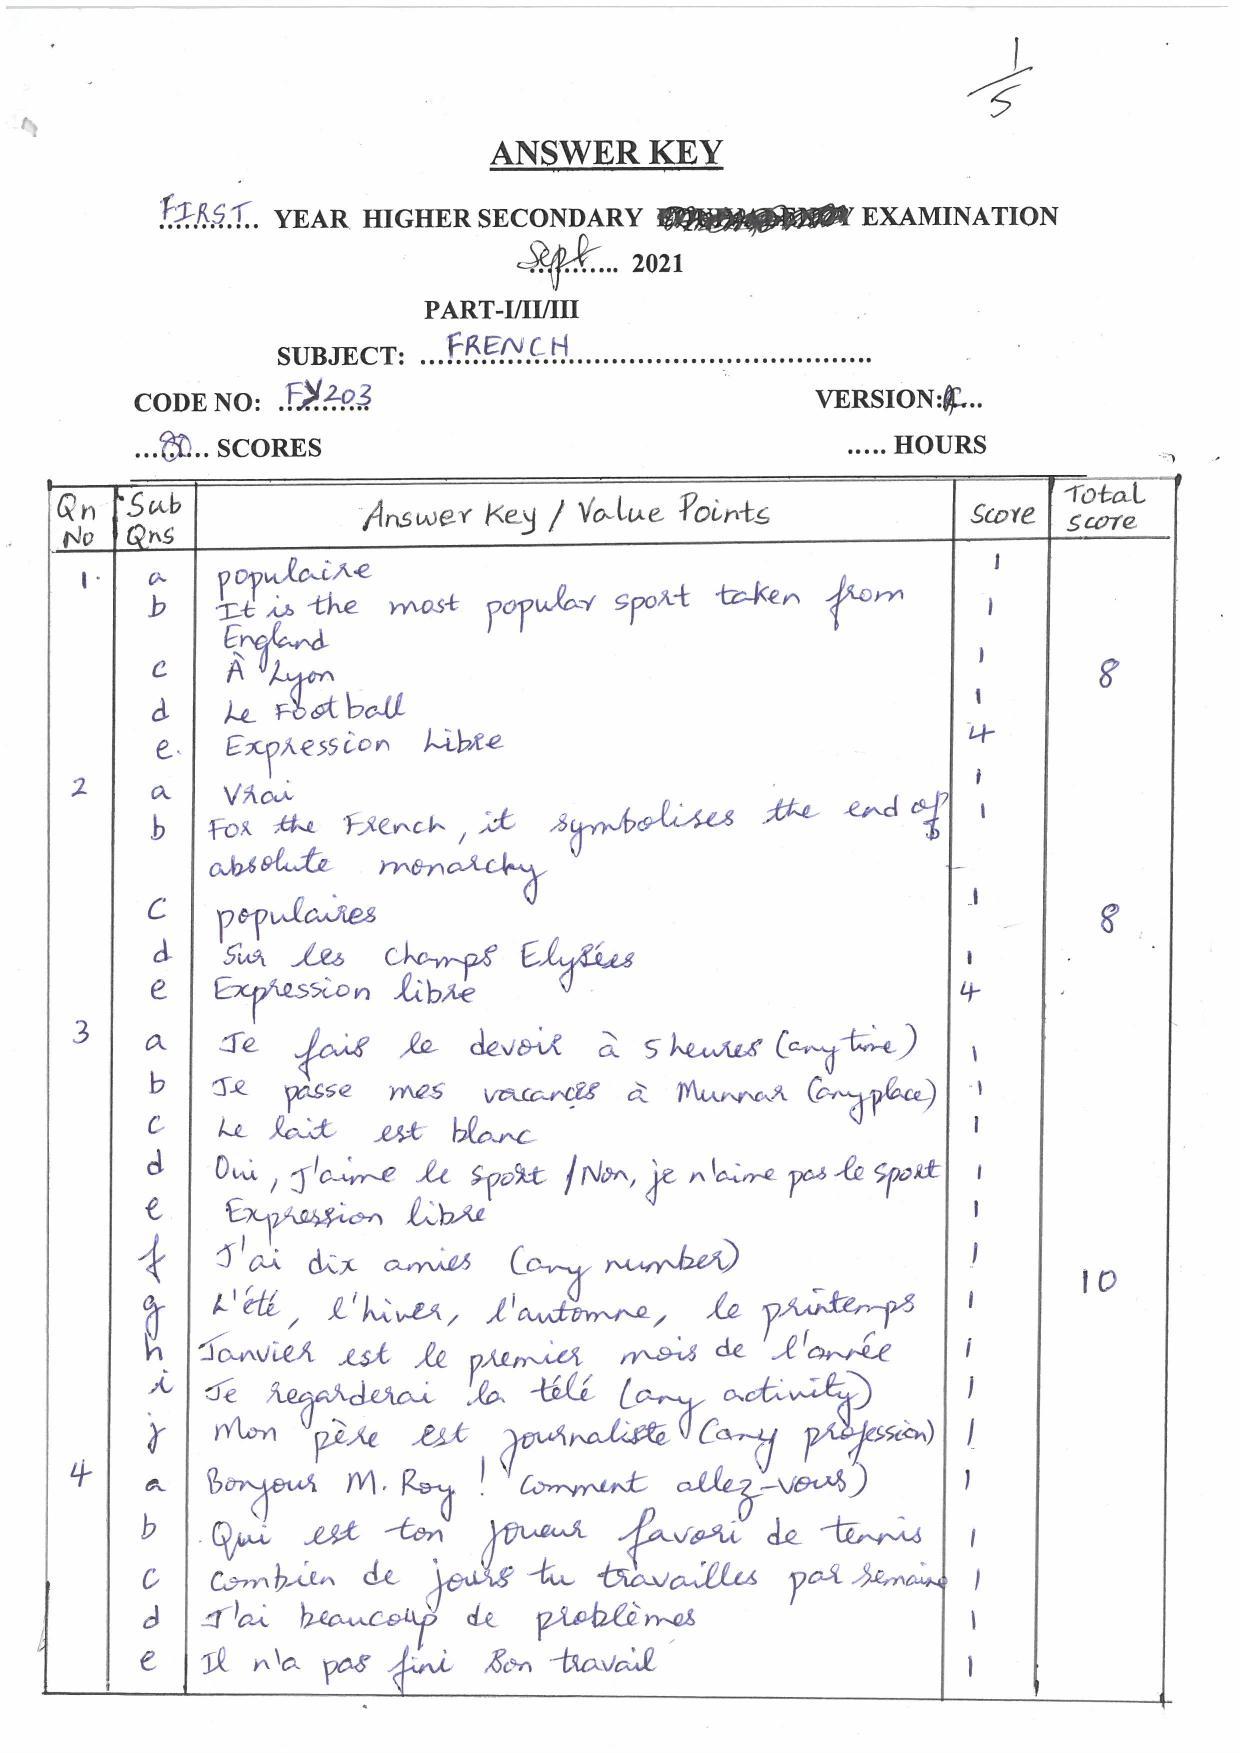 1/5
ANSWER KEY
FIRST YEAR HIGHER SECONDARY EXAMINATION
Sept 2021
PART-I/II/III
SUBJECT: FRENCH
CODE NO: FY203 VERSION:
80 SCORES ..... HOURS
Qn No Sub Qns Answer Key / Value Points Score Total Score
1. a populaire 1
b It is the most popular sport taken from 1
England
c À Lyon 1 8
d Le Football 1
e. Expression Libre 4
2 a Vrai 1
b For the French, it symbolises the end of 1
absolute monarchy
c populaires 1 8
d Sur les champs Elysées 1
e Expression libre 4
3 a Je fais le devoir à 5 heures (any time) 1
b Je passe mes vacances à Munnar (any place) 1
c Le lait est blanc 1
d Oui, j'aime le sport / Non, je n'aime pas le sport 1
e Expression libre 1
f J'ai dix amies (any number) 1 10
g L'été, l'hiver, l'automne, le printemps 1
h Janvier est le premier mois de l'année 1
i Je regarderai la télé (any activity) 1
j Mon père est journaliste (any profession) 1
4 a Bonjour M. Roy ! Comment allez-vous) 1
b Qui est ton joueur favori de tennis 1
c Combien de jours tu travailles par semaine 1
d J'ai beaucoup de problèmes 1
e Il n'a pas fini son travail 1